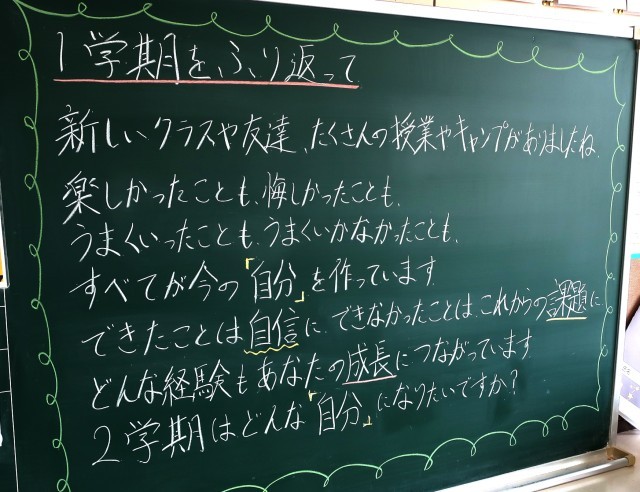 1学期をふり返って
新しいクラスや友達、たくさんの授業やキャンプがありましたね
楽しかったことも、悔しかったことも、
うまくいったことも、うまくいかなかったことも、
すべてが今の「自分」を作っています
できたことは自信に、できなかったことは、これからの課題に
どんな経験もあなたの成長につながっています
2学期はどんな「自分」になりたいですか?